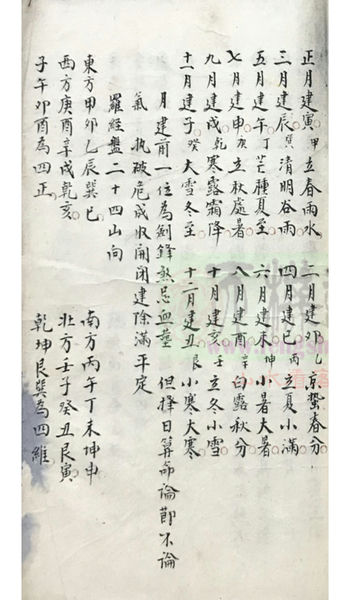 正月建寅甲立春雨水
二月建卯乙京蟄春分
三月建辰巽清明谷雨
四月建巳丙立夏小滿
五月建午丁芒種夏至
六月建未坤小暑大暑
七月建申庚立秋處暑
八月建酉辛白露秋分
九月建戌乾寒露霜降
十月建亥壬立冬小雪
十一月建子癸大雪冬至
十二月建丑艮小寒大寒
月建前一位為劍鋒煞忌血葬
但擇日算命論節不論
氣
执破危成收開閉建除滿平定
羅經盤二十四山向
東方甲卯乙辰巽巳
南方丙午丁未坤申
西方庚酉辛戌乾亥
北方壬子癸丑艮寅
子午卯酉為四正
乾坤艮巽為四維